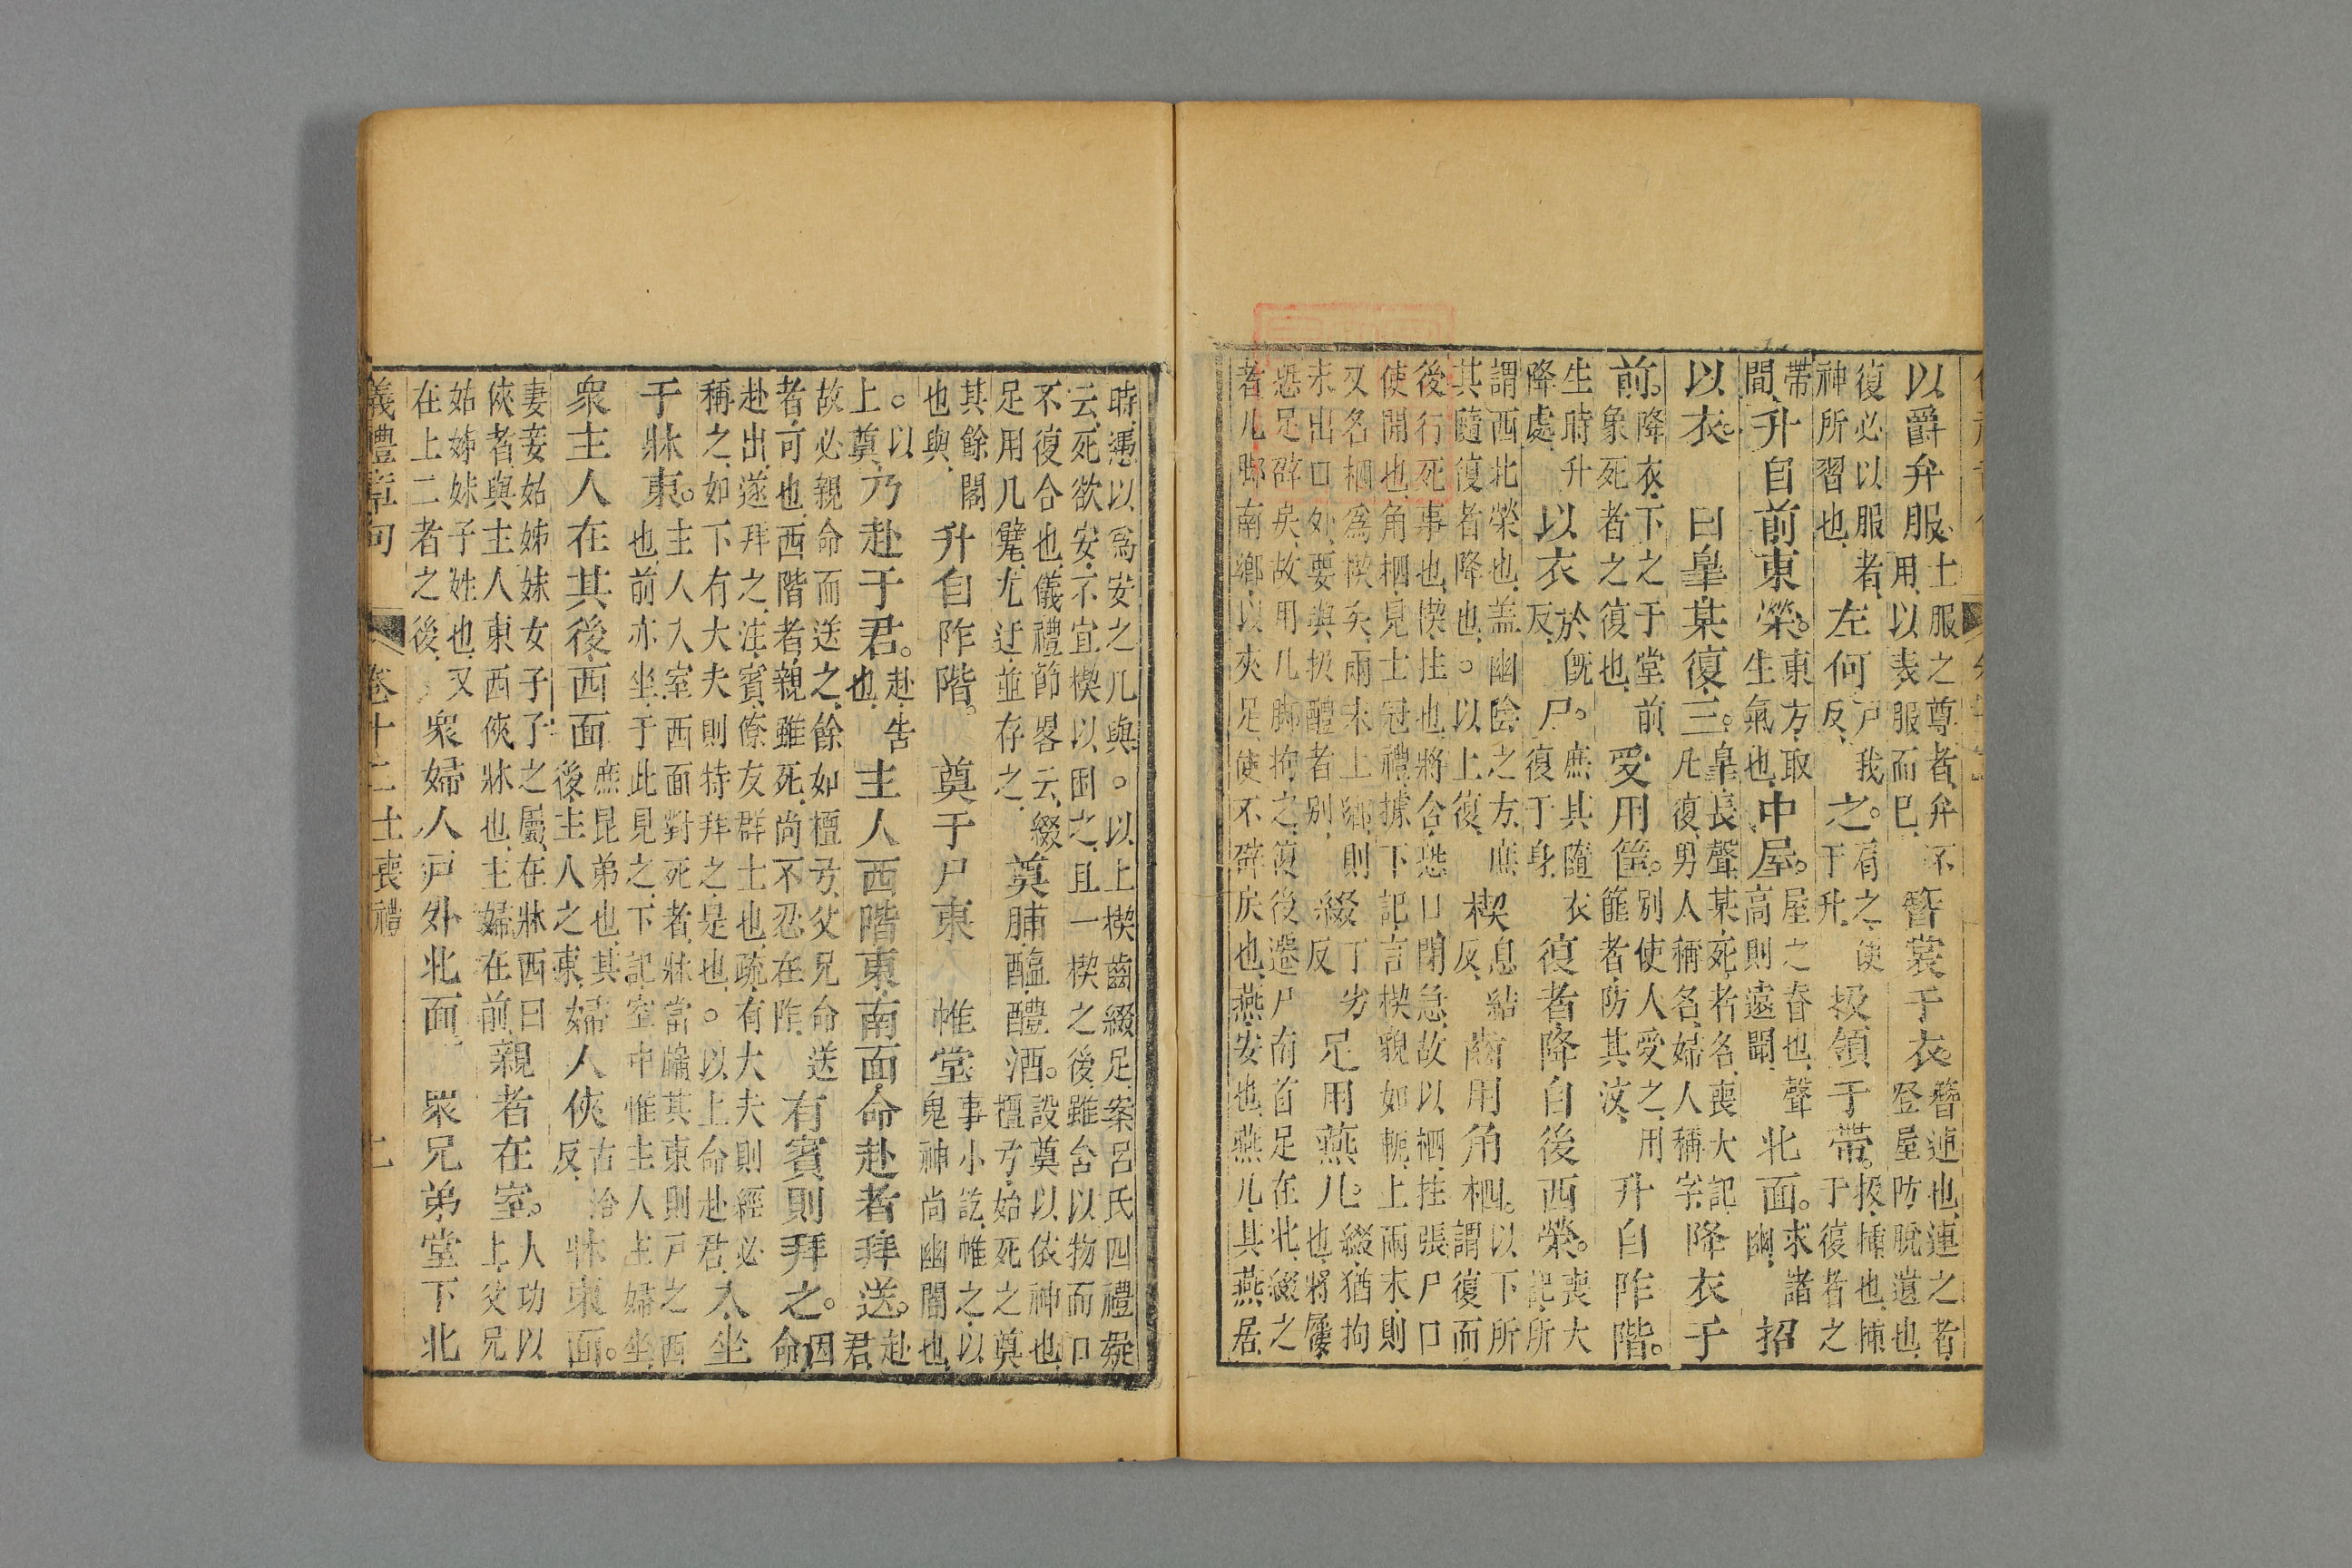 以爵弁服、士服之尊者、弁不用、以表服而已、簪裳于衣。簪連也、連之者登屋防脫遺也、
復必以服者、神所習也、左何戸我反、之。肩之、便于升、扱領于帶。扱、插也、插于復者之
帶間、升自前東榮。東方、取生氣也、中屋。屋之脊也、聲高則遠聞、北面。求諸幽、招
以衣。曰皐某復三。皐、長聲、某、死者名、喪大記、凡復、男人稱名、婦人稱字、降衣于
前。降衣、下之于堂前象死者之復也、受用篋。別使人受之、用篚者、防其汶、升自阼階。
生時升降處、以衣於旣反、尸。庶其隨衣復于身、復者降自後西榮。喪大記、所
謂西北榮也、蓋幽陰之方、庶其隨復者降也、。以上復、楔息結反、齒用角柶。以下所謂復而
後行死事也、楔、拄也、將含、恐口閉急、故以柶、拄張尸口使開也、角柶、見士冠禮、據下記、言楔貌如軛、上兩末、則
又名柶爲楔矣、兩末上鄉、則未出口外、要與扱醴者別、綴丁劣反、足用燕几。綴、猶拘也、將屨、
恐足辟戾、故用几脚拘之、復後遷尸南首、足在北、綴之者、几脚南鄉、以夾足、使不辟戾也、燕、安也、燕几、其燕居
時、憑以爲安之几與。以上楔齒綴足、案呂氏四禮疑云、死欲安、不宜楔以困之、且一楔之後、雖含以物而口
不復合也、儀禮節畧云、綴足用几躄、尤迂、並存之、奠脯醢醴酒。設奠以依神也、檀弓、始死之奠
其餘閣也與、升自阼階。奠于尸東 帷堂事小訖、帷之、以鬼神尚幽闇也、
。以上奠、乃赴于君。赴、告也、主人西階東、南面、命赴者、拜送。赴君、
故必親命而送之、餘如檀弓、父兄命送者、可也、西階者、親雖死、尚不忍在阼、有賓則拜之。因命
赴出、遂拜之、注、賓、僚友群士也、疏、有大夫則經必稱之、如下有大夫則特拜之、是也、。以上命赴君、入、坐
于牀東。主人入室、西面對死者、牀當牖、其東則戸之西也、前亦坐于此、見之、下記、室中惟主人主婦坐、
衆主人在其後、西面庶昆弟也、其後、主人之東、婦人俠古洽反、牀東面。
妻妾姑姊妹女子子之屬、在牀西、曰俠者、與主人東西俠牀也、主婦在前、親者在室。大功以上、父兄
姑姊妹子姓也、又在上二者之後、衆婦人、戸外北面、衆兄弟、堂下北
儀禮章句 卷十二士喪禮